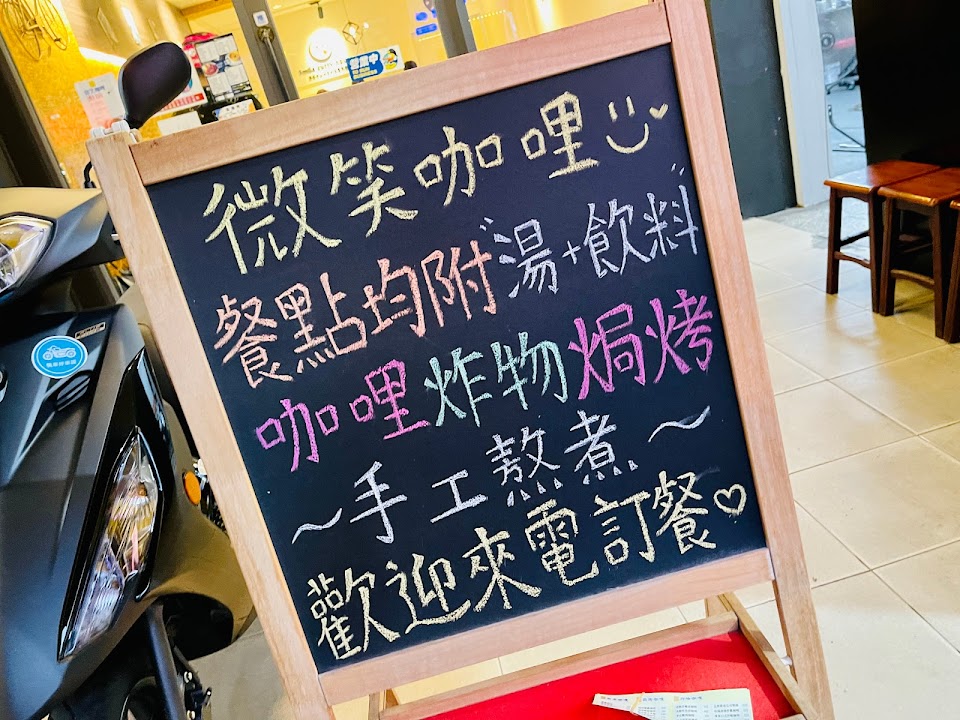 營業中
微笑咖哩
餐點均附"湯+飲料"
咖哩炸物焗烤
~手工熬煮~
歡迎來電訂餐♡